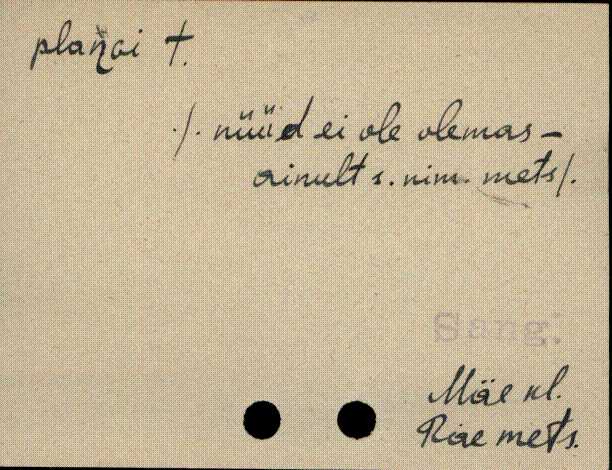 plaṅgi t.
./. nüüd ei ole olemas –
ainult s. nim. mets/.
Sang.
Mäe kl.
Räe mets.